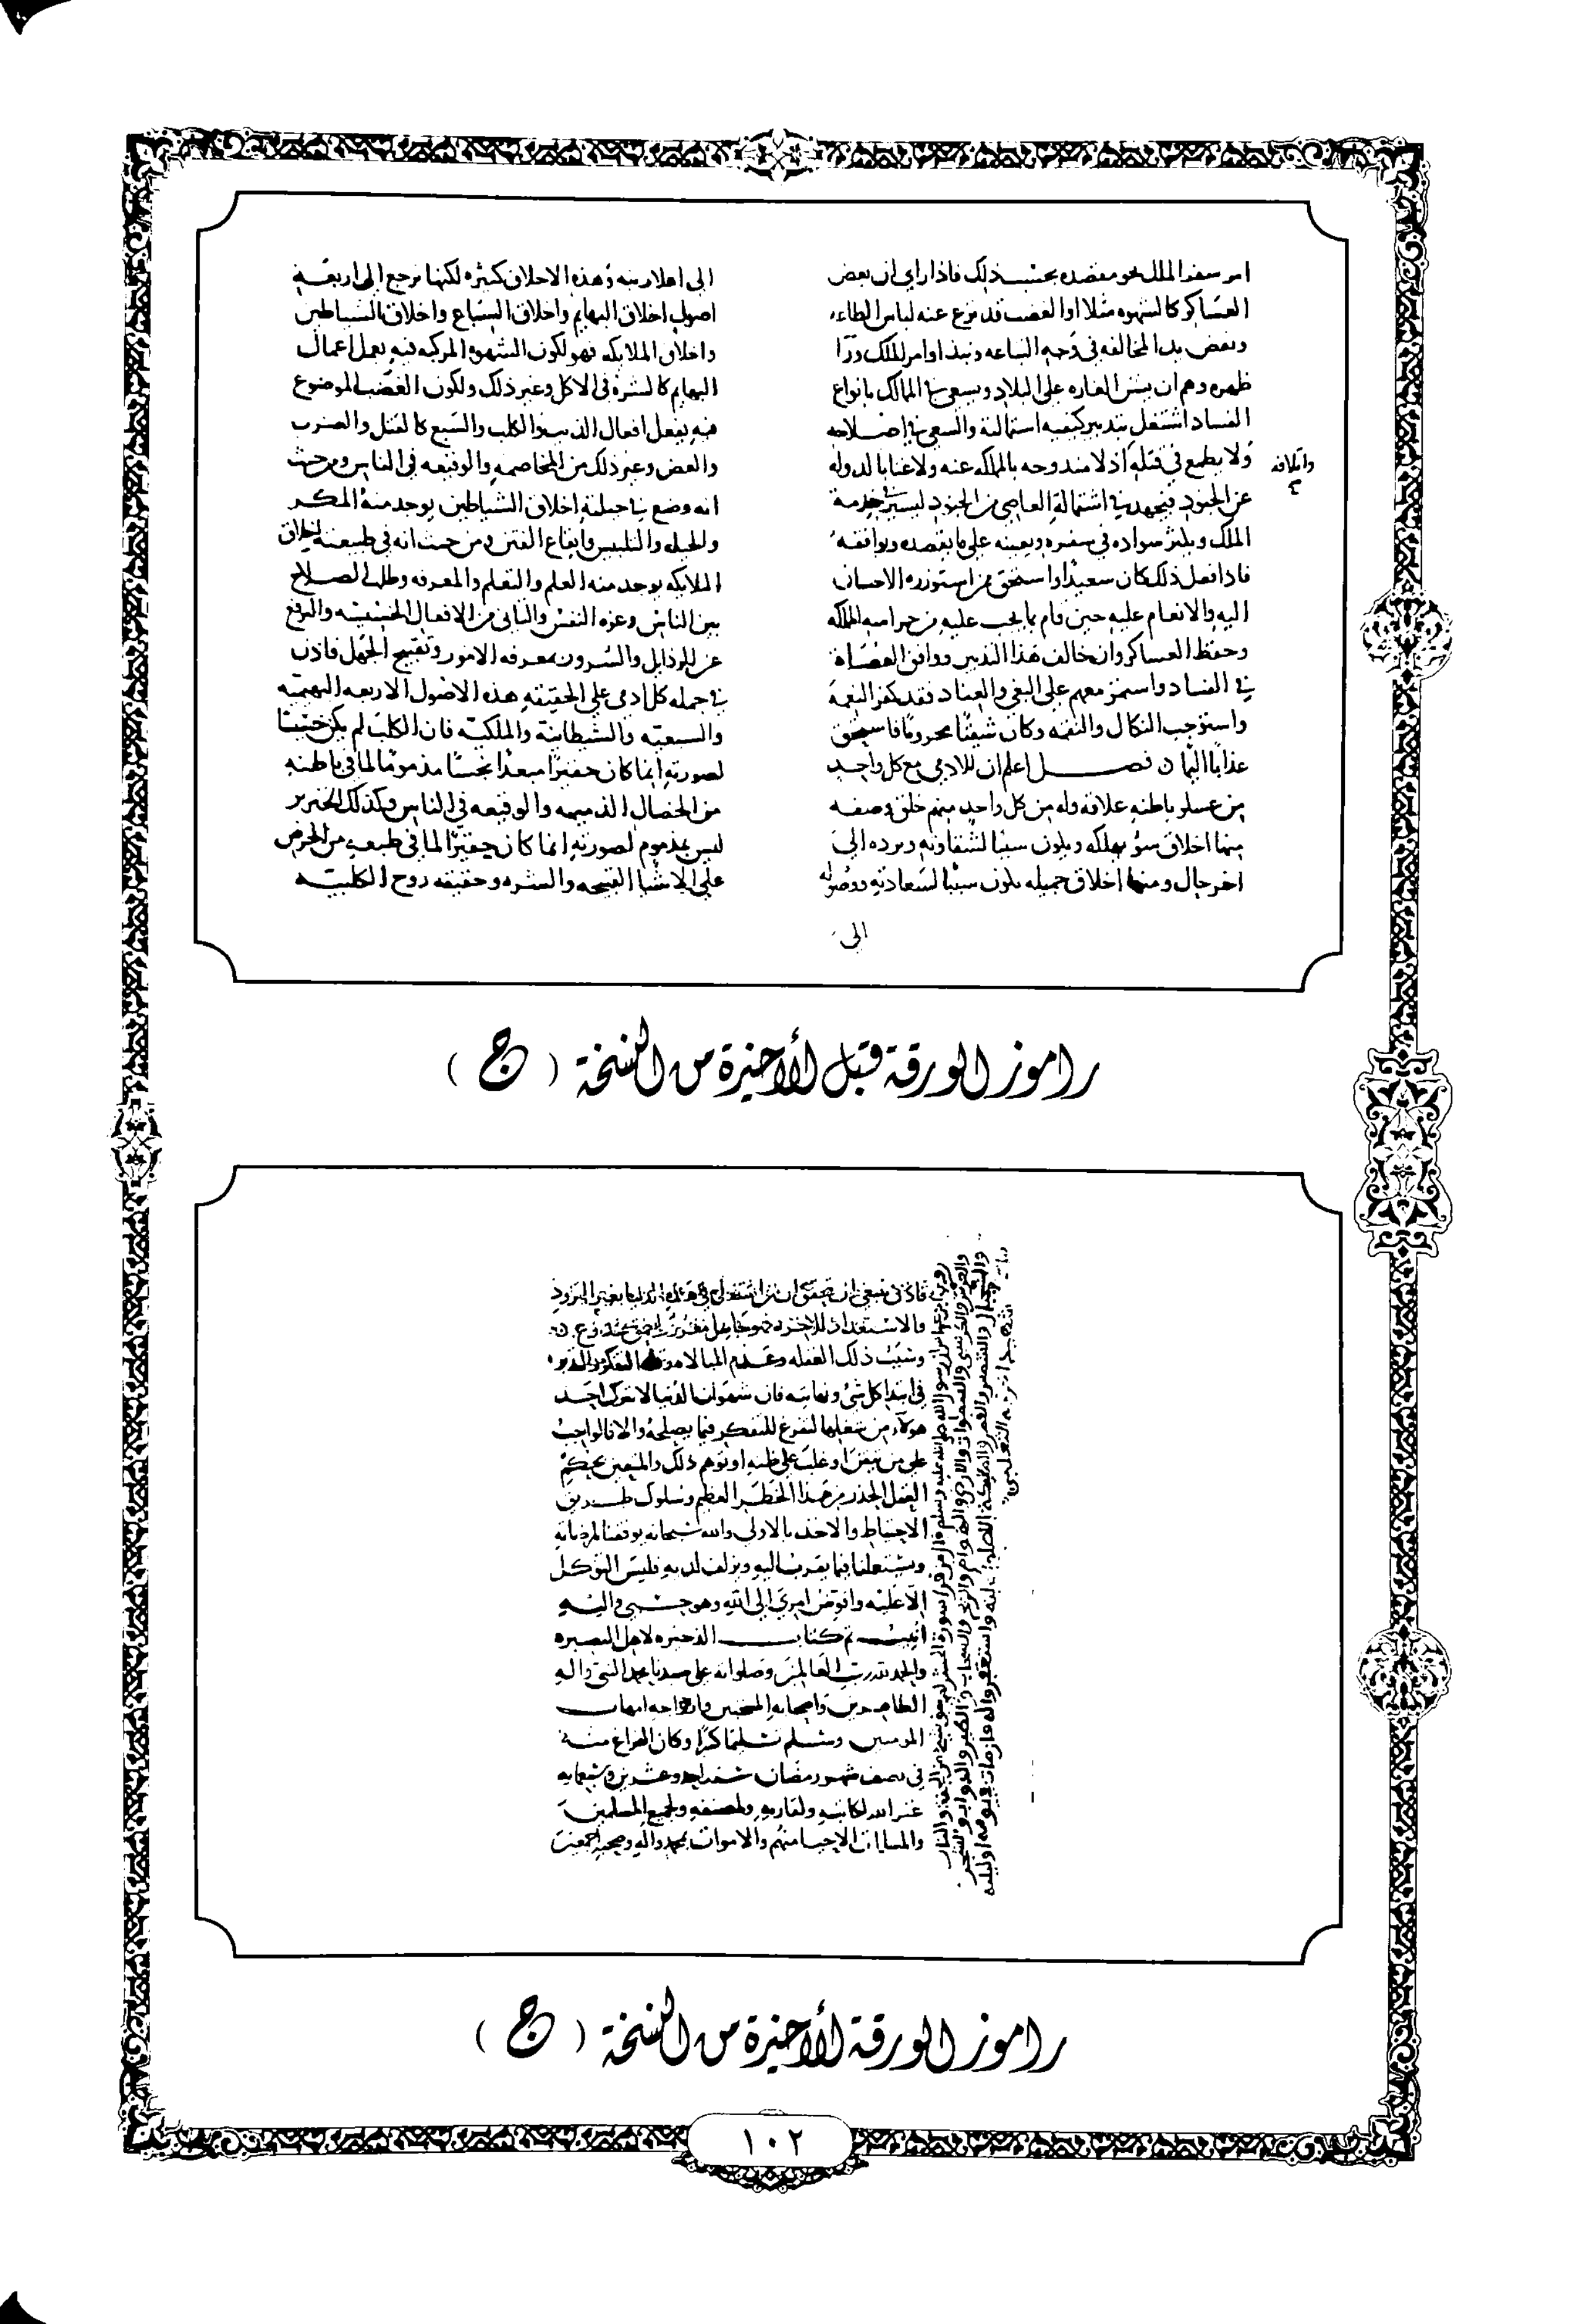 امر سفر الملك نحو مقصده بحسب ذلك فاذا راى ان بعض
العساكر كالشهوه مثلا او الغضب قد نزع عنه لباس الطاعه
ونفض يد المخالفه في وجه الساعه ونبذ اوامر الملك ورا
ظهره وهم ان يشن الغاره على البلاد ويسعى في الممالك بانواع
الفساد اشتغل بتدبير كيفيه استمالته والسعي في اصلاحه
ولا يطمع في قتله اذ لا مندوحه بالمملكه عنه ولا غنا بالدوله
عن الجنود فيجهد في استمالة العاصي من الجنود ليسير في خدمة
الملك ويكثر سواده في سفره ويعينه على ما يقصده ويوافقه
فاذا فعل ذلك كان سعيدا واستحق ممن استوزره الاحسان
اليه والانعام عليه حين قام بما يجب عليه من حراسه المملكه
وحفظ العساكر وان خالف هذا التدبير ووافق العصاة
في الفساد واستمر معهم على البغي والعناد فقد كفر النعمة
واستوجب النكال والنقمه وكان شقيا محروما فاستحق
عذابا اليما ن فصل اعلم ان للادمي مع كل واحد
من عسكر باطنه علاقه وله من كل واحد منهم خلق وصفه
منها اخلاق سؤ تهلكه ويكون سببا لشقاوته وترده الى
اخر حال ومنها اخلاق جميله تكون سببا لسعادته ووصوله
الى
الى اعلا رتبه وهذه الاخلاق كثيره لكنها ترجع الى اربعة
اصول اخلاق البهايم واخلاق السباع واخلاق الشياطين
واخلاق الملايكه فهو لكون الشهوه المركبه فيه يعمل اعمال
البهايم كالشره في الاكل وغير ذلك ولكون الغضب الموضوع
فيه يفعل افعال الذيب والكلب والسبع كالقتل والضرب
والعض وغير ذلك من المخاصمه والوقيعه في الناس ومن حيث
انه وضع في جبلته اخلاق الشياطين يوجد منه المكر
والحيل والتلبيس وايقاع الفتن ومن حيث انه في طبيعته اخلاق
الملايكه يوجد منه العلم والتعلم والمعرفه وطلب الصلاح
بين الناس وعزه النفس والتابى من الافعال الخسيسه والترفع
عن الرذايل والسرور بمعرفه الامور وتقبيح الجهل فاذن
في جمله كل ادمي على الحقيقه هذه الاصول الاربعه البهيميه
والسبعيه والشيطانية والملكية فان الكلب لم يكن خسيسا
لصورته انما كان حقيرا مبعدا نجسا مذموما لما في باطنه
من الخصال الذميمه والوقيعه في الناس وكذلك الخنزير
ليس بمذموم لصورته انما كان حقيرا لما في طبعه من الحرص
على الاشيا القبيحه والشره وحقيقه روح الكلبيه
راموز الورقة قبل الأخيرة من النسخة ( ج )
فاذن ينبغي ان تحقق ان من اشتغل في هذه الدنيا بغير التزود
والاستعداد للاخره
وسبب ذلك الغفله وعدم المبالاه
في ابتدا كل شي ونهايته فان شهوات الدنيا لا تترك احد
هولاء من شغلها لتفرغ للتفكر فيما يصلحه والا فالواجب
على من تيقن او غلب على ظنه او توهم ذلك والمتعين بحكم
العقل الحذر من هذا الخطر العظيم وسلوك طريق
الاحتياط والاخذ بالاولى والله سبحانه يوفقنا لمرضاته
ويشغلنا فيما يقرب اليه ويزلف لديه فليس التوكل
الا عليه وافوض امري الى الله وهو حسبي واليه
انيب تم كتاب الذخيره لاهل البصيره
والحمد لله رب العالمين وصلواته على سيدنا محمد النبي واله
الطاهرين واصحابه المنتجبين وازواجه امهات
المومنين وسلم تسليما كثيرا وكان الفراغ منه
في نصف شهر رمضان سنة احد وعشرين وسبعمايه
غفر الله لكاتبه ولقاريه ولمصنفه ولجميع المسلمين
والمسلمات الاحيا منهم والاموات بمحمد واله وصحبه اجمعين
راموز الورقة الأخيرة من النسخة ( ج )
١٠٢